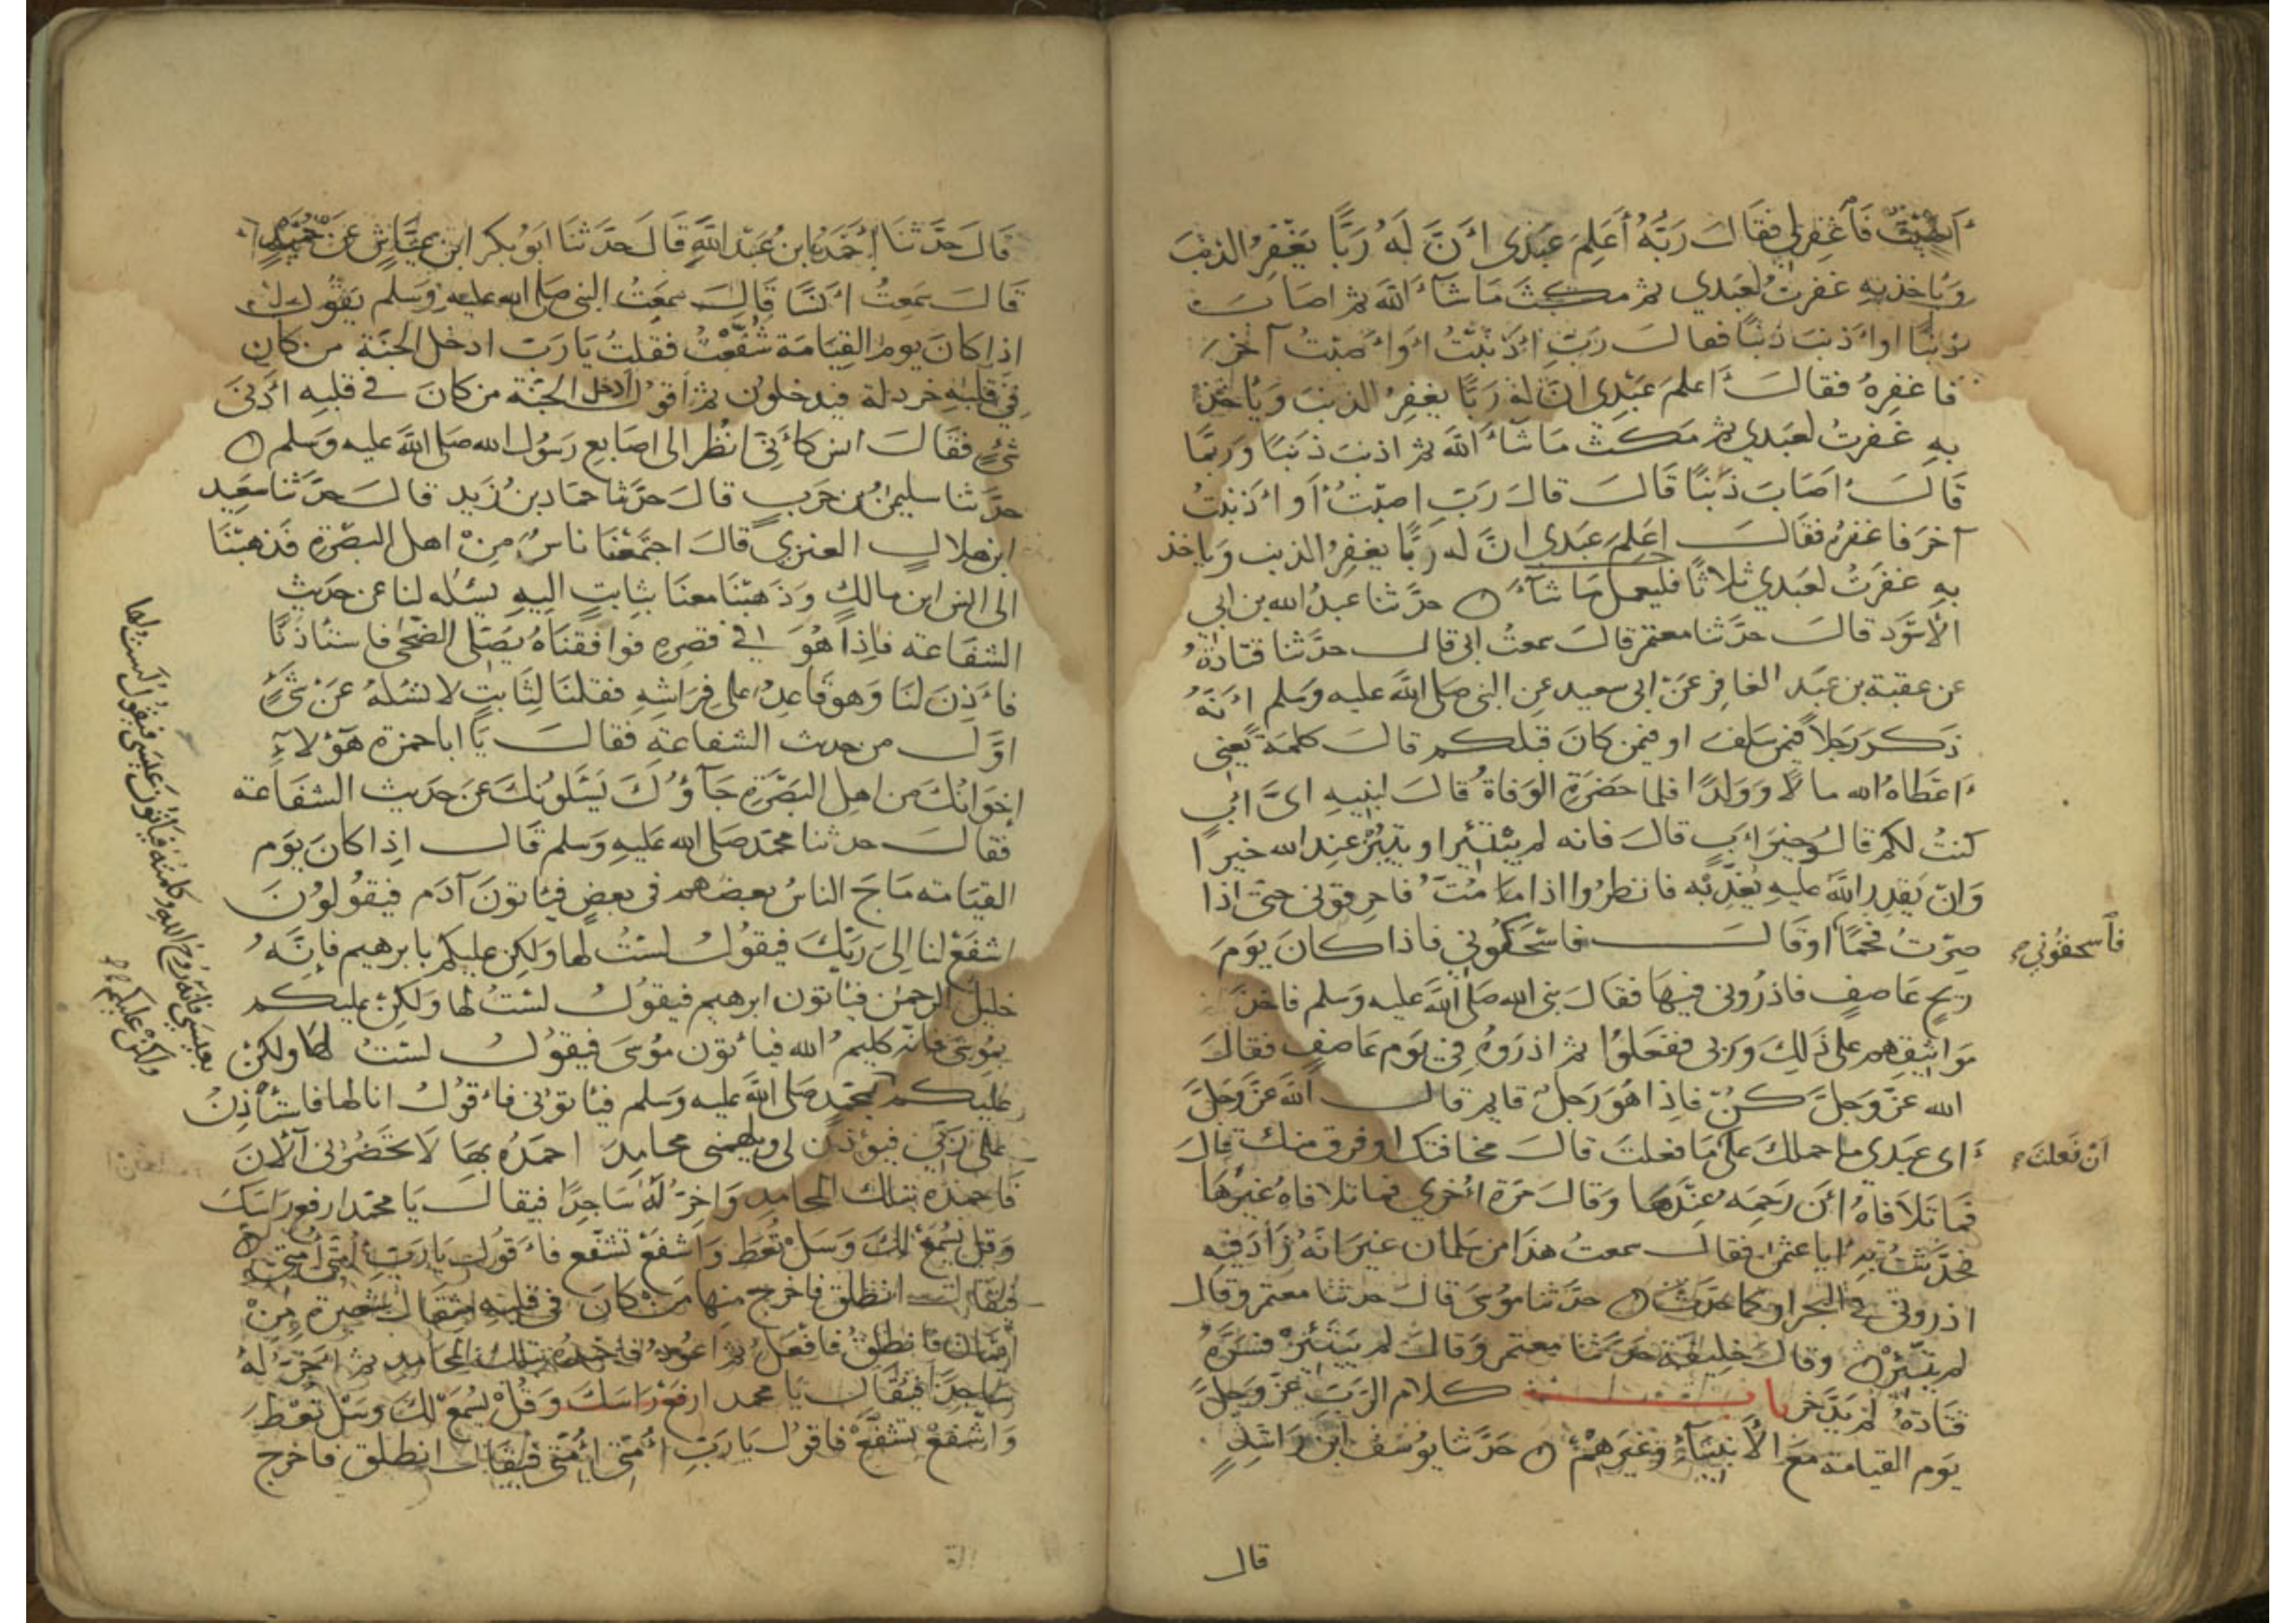 أَصَبْتُ فَاغْفِرْ لِي فَقَالَ رَبُّهُ أَعَلِمَ عَبْدِي أَنَّ لَهُ رَبًّا يَغْفِرُ الذنبَ
وَيَاخذ بِهِ غفرتُ لعَبدي ثم مكثَ مَا شآءَ اللَّه ثم اصَابَ
ذنبًا او أذنبَ ذنبًا فقالَ رَبّ أَذْنَبْتُ أوْ أَصَبْتُ آخرَ
فاغفِرهُ فقالَ أَعلمَ عَبْدِى انَّ لهُ رَبًّا يغفِرُ الذنبَ وَيَاخُذُ
بهِ غفرتُ لعَبدي ثم مَكثَ مَا شآءَ اللَّه ثم اذنبَ ذنبًا وَربّما
قَالَ أصَابَ ذَنْبًا قَالَ قالَ رَبّ اصَبْتُ أَو أَذنبتُ
آخرَ فاغفرهُ فقَالَ اعَلِمَ عَبْدِى انَّ له رَبًّا يغفِرُ الذنب وَياخذ
بهِ غفرَتُ لعَبدي ثلاثًا فليعمل مَا شآءَ حدَّثنا عبدُ الله بن ابي
الاسْوَد قالَ حدَّثنا معتمر قالَ سمعتُ ابى قال حدَّثنا قتادَةُ
عن عقبة بن عبَد الغافِر عَنْ ابى سعيد عنِ النبى صَلى اللَّه عليه وَسَلم أنّهُ
ذَكرَ رَجلاً فيمن سَلفَ او فيمن كانَ قبلكم قالَ كلمَةً يَعنى
أَعْطَاهُ الله مالاً وَوَلدًا فلما حضرَتِ الوَفاةُ قالَ لبنيهِ اىَّ أبٍ
كنتُ لكم قالُوا خيرَ أبٍ قالَ فانه لم يَبْتَئِر او يبتئز عند الله خيرًا
وَانْ يَقدِرِ اللَّهُ عليهِ يُعَذِّبْه فانظرُوا اذا ما مُتُّ فاحرقونى حتى اذا
صِرْتُ فحمًا أوقَالَ فاسْحَكُونِي فاذا كانَ يَوَمَ
ريحٍ عَاصفٍ فاذرُونى فيهَا فقالَ نبى الله صَلى اللَّه عليه وَسلم فاخذَ
مَوَاثيقهم على ذَلِكَ وَربى ففعَلوُا ثم اذرَوهُ فِي يَوم عَاصفٍ فقالَ
الله عزَّ وَجلَّ كنْ فاذِا هُوَ رَجلٌ قايم قال اللَّهُ عَزَّ وَجلَّ
أى عَبْدِي ما حملكَ علَى مَا فعلتَ قالَ مخافتك او فرق منك قالَ
فما تَلاَفاهُ أنْ رَحِمَه عِنْدَها وَقالَ مَرّةً أخري فما تلافاهُ غيرُها
فحدَّثتُ بهِ ابا عثمن فقال سمعتُ هذا من سَلمانَ غيرَ انهُ زادَ فيه
اذرونى في البحر او كما حدّثَ حدَّثنا مُوسَى قالَ حدثنا معتمر وقال
لم يبتئِرْ وقالَ خليفة حدَّثنا معتمر وقالَ لم يبتئزْ فسّرَهُ
قتادَةُ لم يدّخر بابُ كلام الرّبّ عزَّ وَجلَّ
يَوم القيامة مَعَ الأَنبيَآءِ وَغيرهِمْ حَدَّثنا يوُسُف ابن رَاشدٍ
فَاسحفُوني
أنْ فَعلتَ
قال
قَالَ حدَّثنَا أَحْمَدُ ابن عَبْد اللَّهِ قَالَ حدَّثنا ابَوُ بكر ابن عيَّاش عَنْ حُمَيْدٍ
قالَ سَمِعتُ أنسًا قالَ سمعتُ النبى صَلى الله عليهِ وَسَلم يقول
اذا كانَ يوم القِيَامَة شُفِّعْتُ فقلتُ يَا رَبّ ادخل الجنَّة من كان
فِي قلبِهِ خردلة فيدخلون ثم أقولُ أدخل الجنّة من كانَ في قلبِه أدنى
شئٍ فقَالَ انس كأَنِّى انظر الى اصَابع رَسُول الله صَلى اللَّه عليه وَسلم
حدَّثنا سليمن بن حَربٍ قالَ حدّثنا حمّاد بن زَيد قالَ حدَّثنا مَعْبد
ابن هلالٍ العنزي قالَ اجتَمَعْنا ناسٌ مِنْ اهل البصْرةِ فذهبْنَا
الى انس ابن مالكٍ وَذَهبْنا معنَا بثابتٍ اليهِ يسئله لنا عن حديث
الشفاعة فاذا هُوَ في قصرهِ فوافقناهُ يُصَلى الضحى فاستأذنَّا
فاَذِنَ لنَا وَهو قَاعِدٌ على فِرَاشِهِ فقلنَا لثابتٍ لا تسْئلهُ عَنْ شئٍ
اوَّلَ من حديث الشفاعةِ فقالَ يَا ابا حمزة هَؤلاءِ
إخوَانكَ من اهل البَصْرَةِ جَآؤُكَ يَسْئلونكَ عَنْ حديث الشفَاعة
فقالَ حدثنا محمّد صَلى الله عَليهِ وَسلم قَال اِذا كانَ يَوم
القيَامة مَاجَ الناسُ بعضهم فى بعضٍ فيَأتونَ آدَم فيقوُلوُنَ
اشفَعْ لنا الى رَبّكَ فيقولُ لستُ لها وَلكن عليكم بابرهيم فإنَّهُ
خليلُ الرحمن فيَأتون ابرهيم فيقول لستُ لها وَلكنْ عليكم
بمُوسَى فانه كليمُ الله فيأتون مُوسَى فيقوُل لستُ لها ولكنْ
عليكم بمحمّدٍ صَلى اللَّه عليه وَسلم فيَأتونى فاقوُل انا لها فاستأذِنُ
على رَبّى فيؤذن لى ويلهمنى محامِدَ احمَدُهُ بهَا لاَ تحضُرُنى آلآنَ
فاحمدُهُ بتلك المحامِدِ وَاخِرُّ لَهُ سَاجِدًا فيقالَ يَا محمّد ارفع رَاسَكَ
وَقل يُسْمَعْ لكَ وَسَلْ تُعط وَاشفعْ تشفّع فأقول يَا رَبّ أمّتى أمّتى
فيُقالَ انطلق فاخرج منهَا مَنْ كانَ فى قلبِه مثقال شعيرة مِنْ
ايمَان فانطلقُ فافعَلُ ثم اعُودُ فاحمدُهُ بتلكَ المحَامد ثم اخِرُّ لَهُ
سَاجِدًا فيُقَال يَا محمد ارفعْ رَاسَكَ وَقُلْ يُسْمَعْ لكَ وَسَلْ تُعْطَ
وَاشفعْ تشفّعْ فاقولُ يَا رَبّ أمّتى أمّتى فيُقَال انطلق فاخرج
بعيسى فانه رُوحُ اللهِ وَكلمتُه فيَأتونَ عيسى فيقولُ لَستُ لها
وَلكنْ عليكم